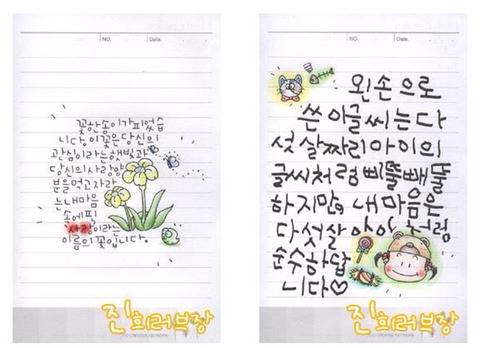 NO. Date.
꽃한송이가피었습
니다. 이꽃은 당신의
관심이라는햇빛과
당신의사랑양
분을먹고자라
는내마음
속에핀
사랑이라는
이름의꽃입니다.
진희러브장
NO. Date.
왼손으로
쓴 이글씨는다
섯살짜리아이의
글씨처럼삐뚤빼뚤
하지만, 내마음은
다섯살아이처럼
순수하답
니다♡
진희러브장